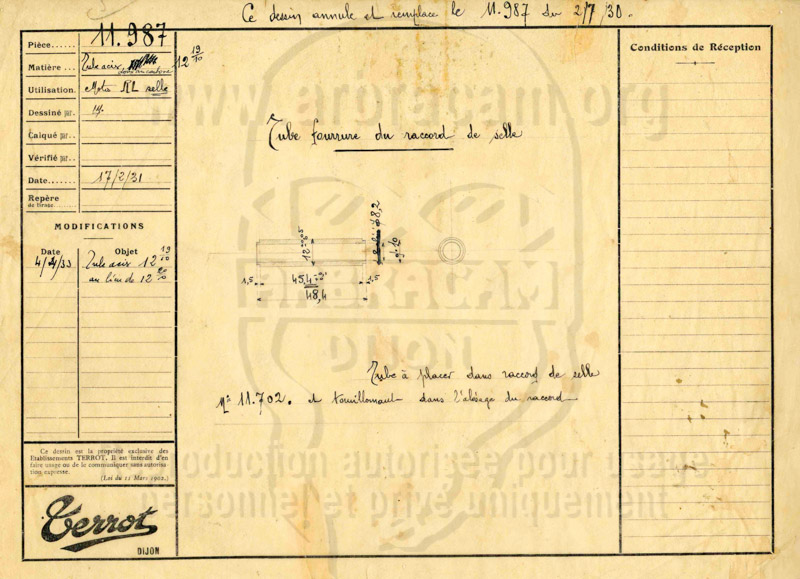 Ce dessin annule et remplace le 11.987 du 2/7/30.
Pièce...... 11.987
Matière ... Tube acix, 12 19/10
Utilisation. Moto RL selle
Dessiné par..
Calqué par..
Vérifié par..
Date....... 17/2/31
Repère
de tirage.
MODIFICATIONS
Date Objet
4/4/33 Tube acix 12 19/10
au lieu de 12 20/10
Ce dessin est la propriété exclusive des
Etablissements TERROT. Il est interdit d'en
faire usage ou de le communiquer sans autorisa-
tion expresse.
(Loi du 11 Mars 1902.)
Terrot
DIJON
Tube fourrure du raccord de selle
ø 8,2
12
1,5
45,4
1,5
48,4
Tube à placer dans raccord de selle
N° 11.702. et tourillonnant dans l'alésage du raccord
Conditions de Réception
www.arbracam.org
ARBRACAM
DIJON
reproduction autorisée pour usage
personnel et privé uniquement